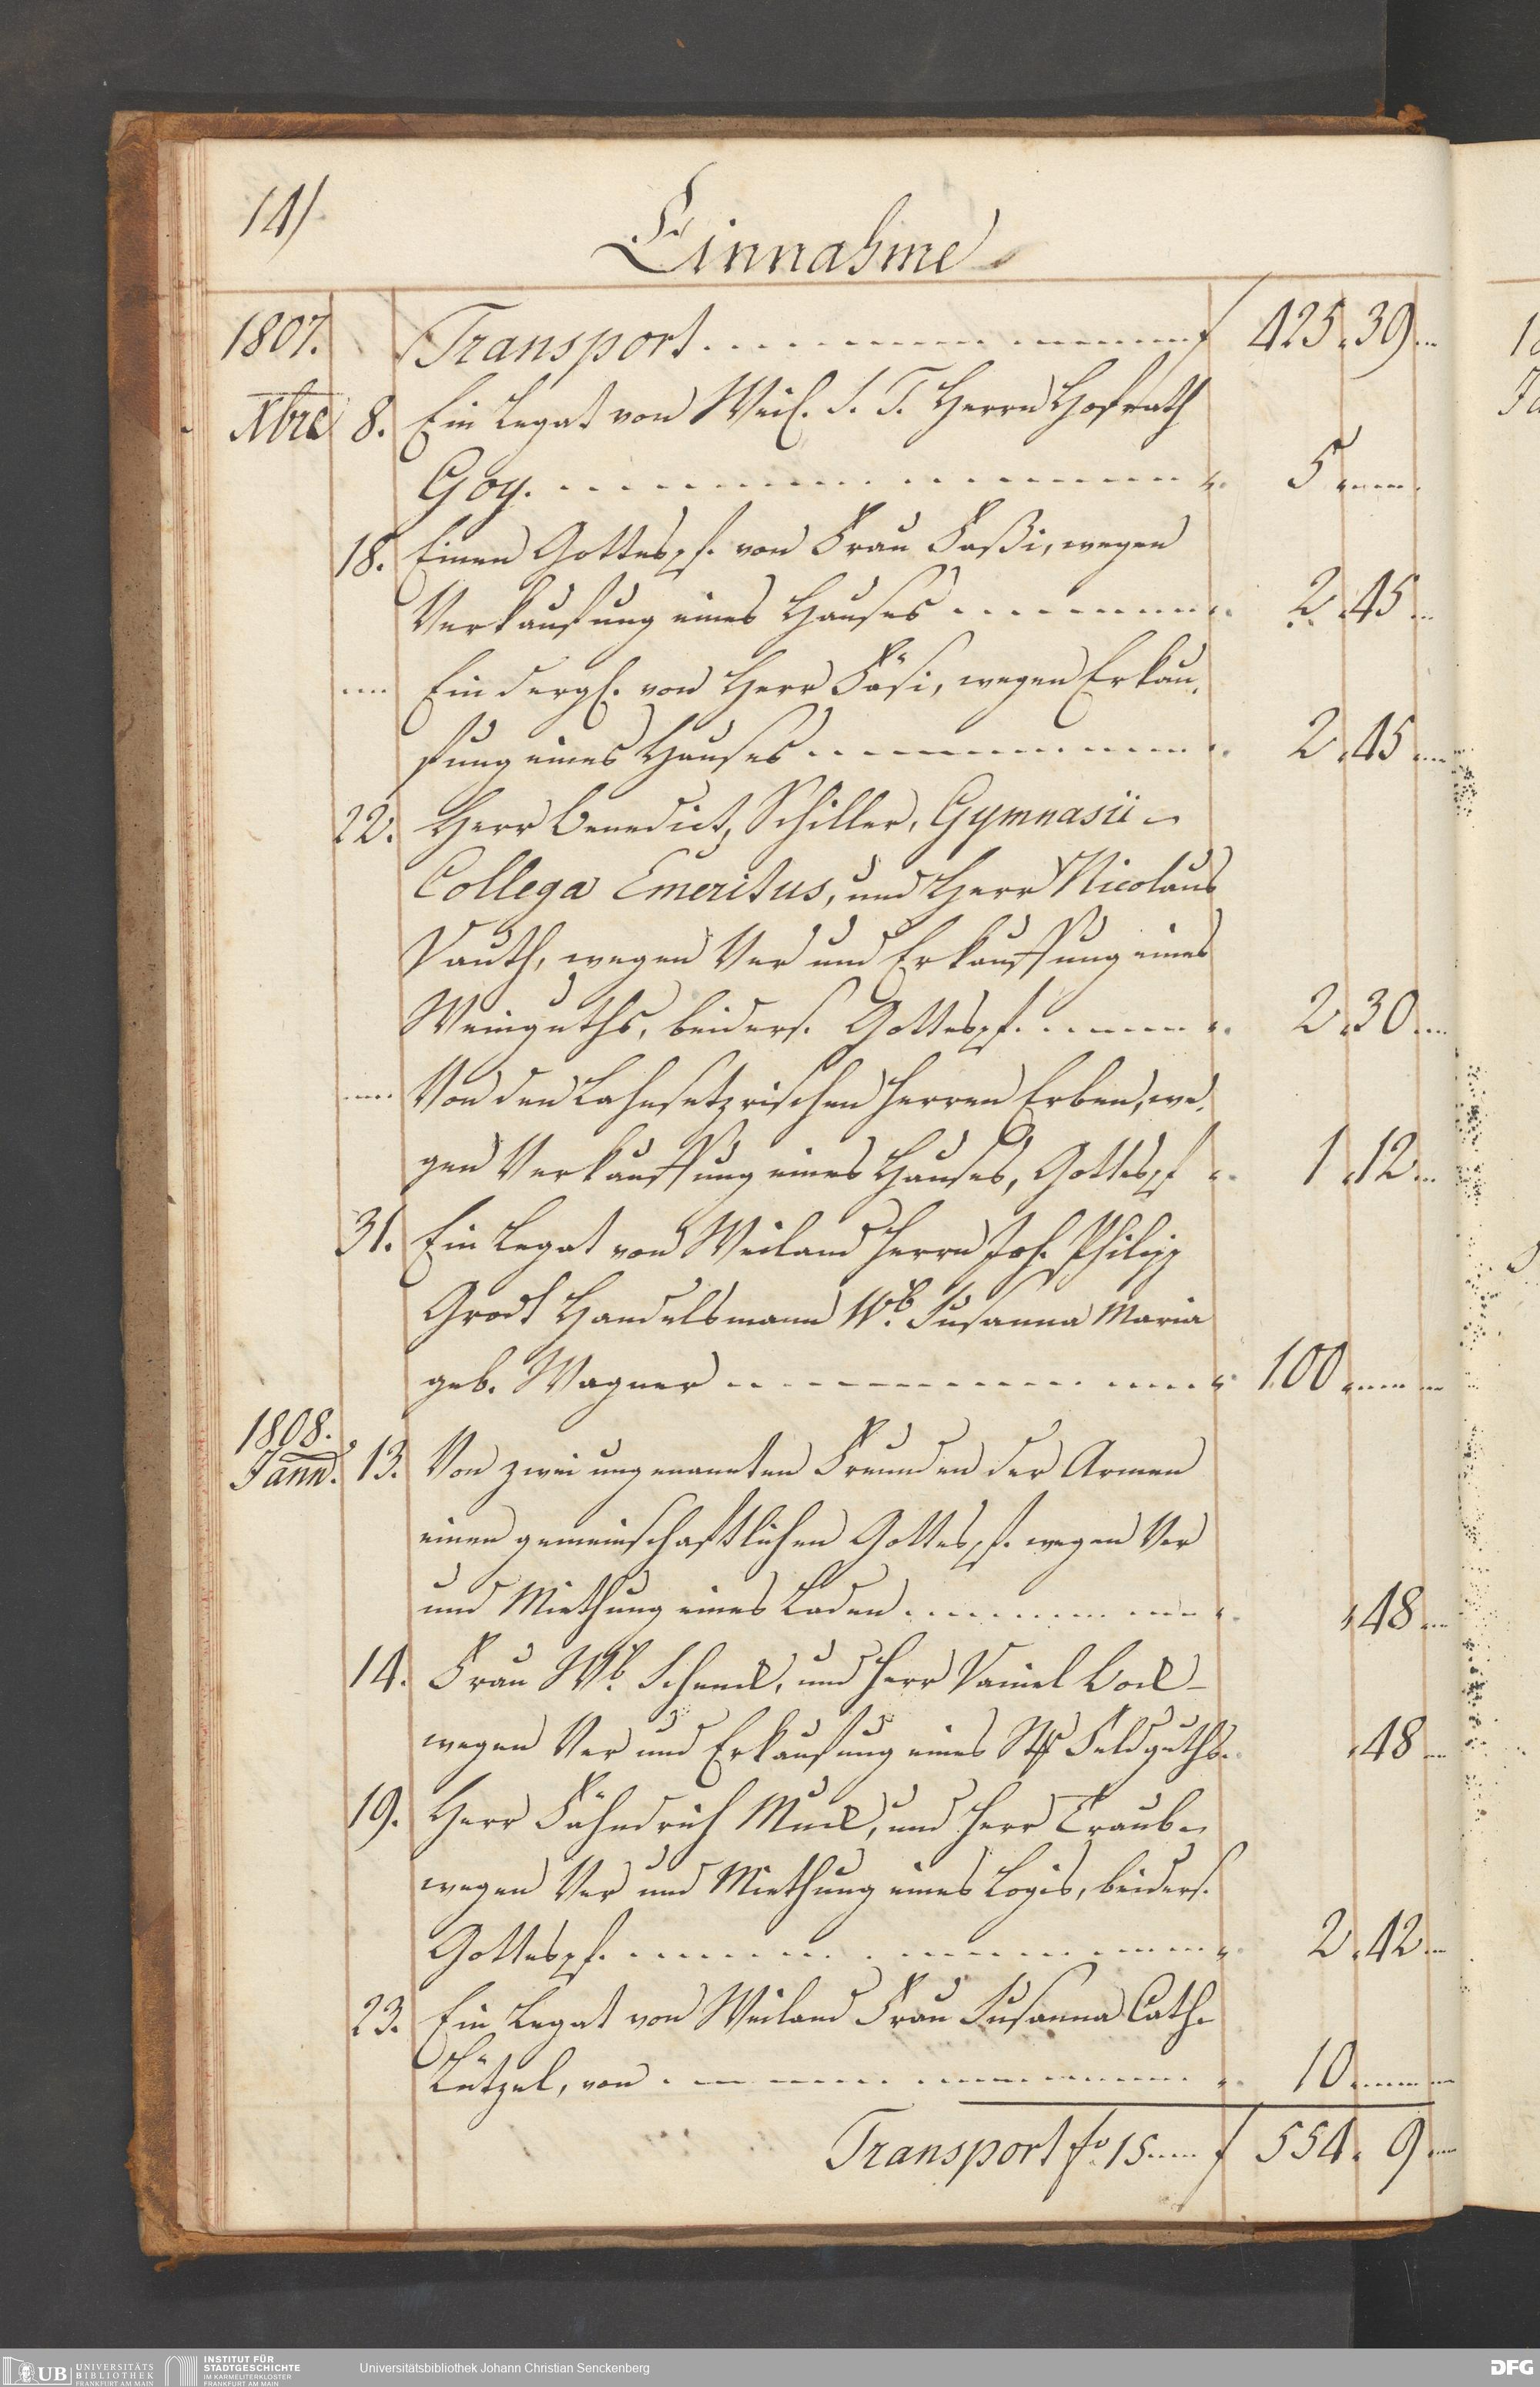 14/
Einnahme
1807. Transport f 425. 39
Xbre 8. Ein Legat von Weil. S. T. Herrn Hofrath
Goy. 5
18. Einen Gottespf. von Frau Faßi, wegen
Verkaufung eines Hauses 2. 45
Ein dergl. von Herr Fäsi, wegen Erkau-
fung eines Hauses 2. 45
22. Herr Benedict Schiller, Gymnasii
Collega Emeritus, und Herr Nicolaus
Vauth, wegen Ver und Erkauffung eines
Weinguths, beiders. Gottespf. 2. 30
Von den Lahnsetzrischen Herren Erben, we-
gen Verkauffung eines Hauses, Gottespf 1. 12
31. Ein Legat von Weiland Herrn Joh. Philipp
Grodt Handelsmann Wb. Susanna Maria
geb. Wagner 100
1808.
Jann. 13. Von zwei ungenannten Freunden der Armen
einen gemeinschaftlichen Gottespf. wegen Ver
und Miethung eines Laden 48
14. Frau Wb. Schenck, und Herr Daniel Bock
wegen Ver und Erkaufung eines Feldguths. 48
19. Herr Fähndrich Muck, und Herr Traub
wegen Ver und Miethung eines Logis, beiders.
Gottespf. 2. 42
23. Ein Legat von Weiland Frau Susanna Cath.
Lützel, von 10
Transport fo. 15 f 554. 9
UB UNIVERSITÄTS
BIBLIOTHEK
FRANKFURT AM MAIN
INSTITUT FÜR
STADTGESCHICHTE
IM KARMELITERKLOSTER
FRANKFURT AM MAIN
Universitätsbibliothek Johann Christian Senckenberg
DFG